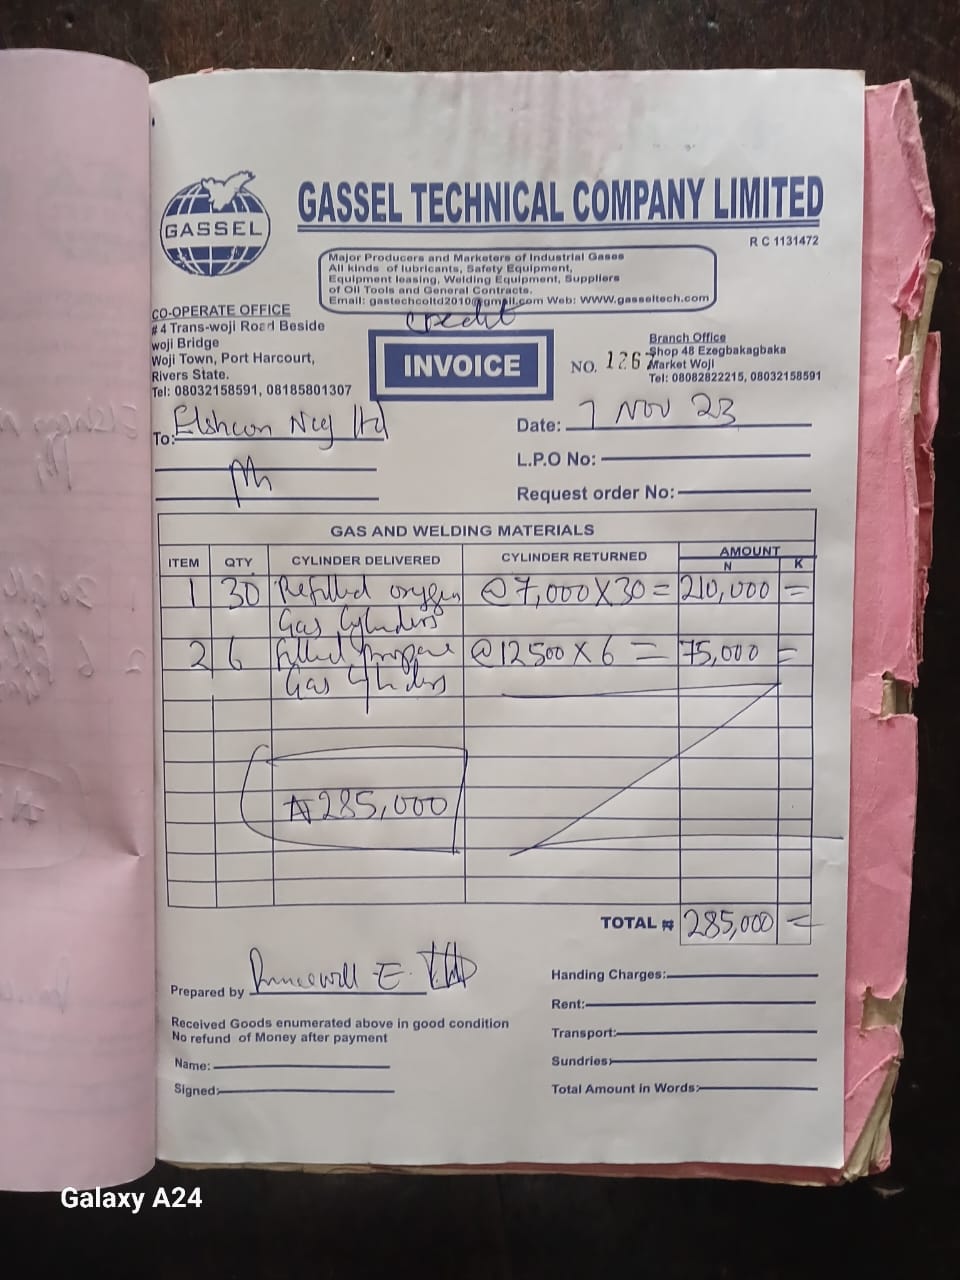 GASSEL
GASSEL TECHNICAL COMPANY LIMITED
R C 1131472
Major Producers and Marketers of Industrial Gases
All kinds of lubricants, Safety Equipment,
Equipment leasing, Welding Equipment, Suppliers
of Oil Tools and General Contracts.
Email: gastechcoltd2010@gmail.com Web: WWW.gasseltech.com
CO-OPERATE OFFICE
# 4 Trans-woji Road Beside
woji Bridge
Woji Town, Port Harcourt,
Rivers State.
Tel: 08032158591, 08185801307
credit
INVOICE
NO. 126
Branch Office
Shop 48 Ezegbakagbaka
Market Woji
Tel: 08082822215, 08032158591
To: Elshcon Nig ltd
Ph
Date: 7 Nov 23
L.P.O No:
Request order No:
GAS AND WELDING MATERIALS
ITEM QTY CYLINDER DELIVERED CYLINDER RETURNED AMOUNT
N K
1 30 Refilled oxygen @ 7,000 X 30 = 210,000 =
Gas Cylinders
2 6 filled propane @ 12500 X 6 = 75,000 =
Gas Cylinders
₦285,000
TOTAL ₦ 285,000 =
Prepared by E.
Received Goods enumerated above in good condition
No refund of Money after payment
Name:
Signed:
Handing Charges:
Rent:
Transport:
Sundries:
Total Amount in Words:
Galaxy A24